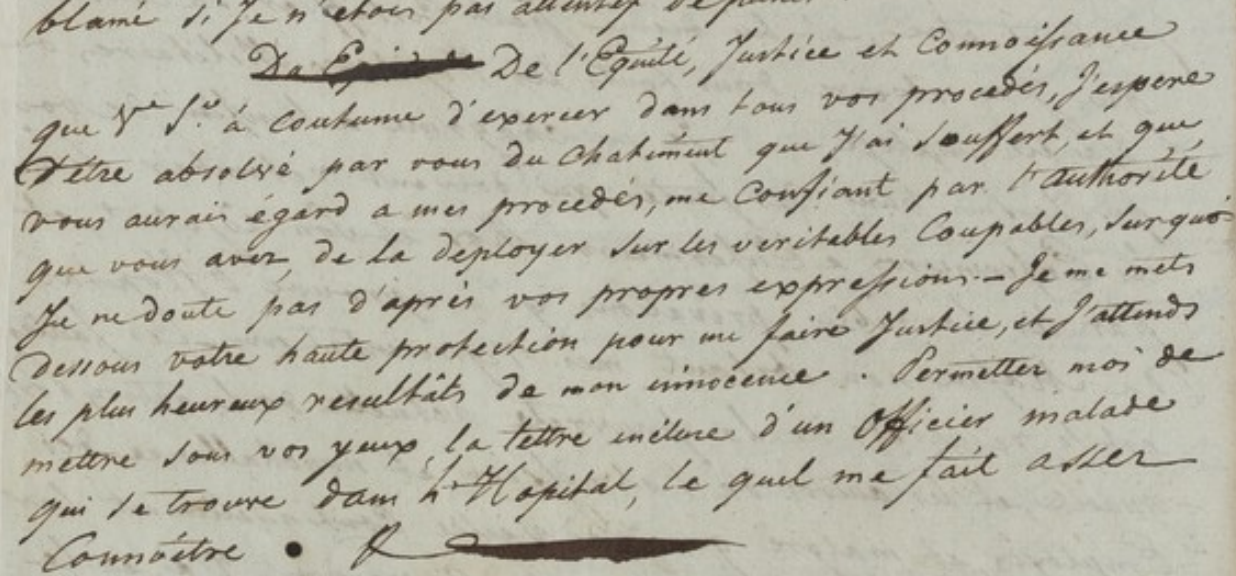 blamé si Je n'etois pas attentif
De l'Equité, Justice et Connoissance
que Ve Sie à coutume d'exercer dans tous vos procedés, J'espere
d'être absolvé par vous du chatiment que J'ai souffert, et que
vous aurais égard a mes procedés, me confiant par l'authorité
que vous avez, de la deployer sur les veritables Coupables, surquoi
Je ne doute pas d'après vos propres expressions - Je me mets
dessous votre haute protection pour me faire Justice, et J'attends
les plus heureux resultâts de mon innocence. Permetter moi de
mettre sous vos yeux, la lettre incluse d'un Officier malade
qui se trouve dans l'Hopital, le quel me fait asser
Connoêtre.